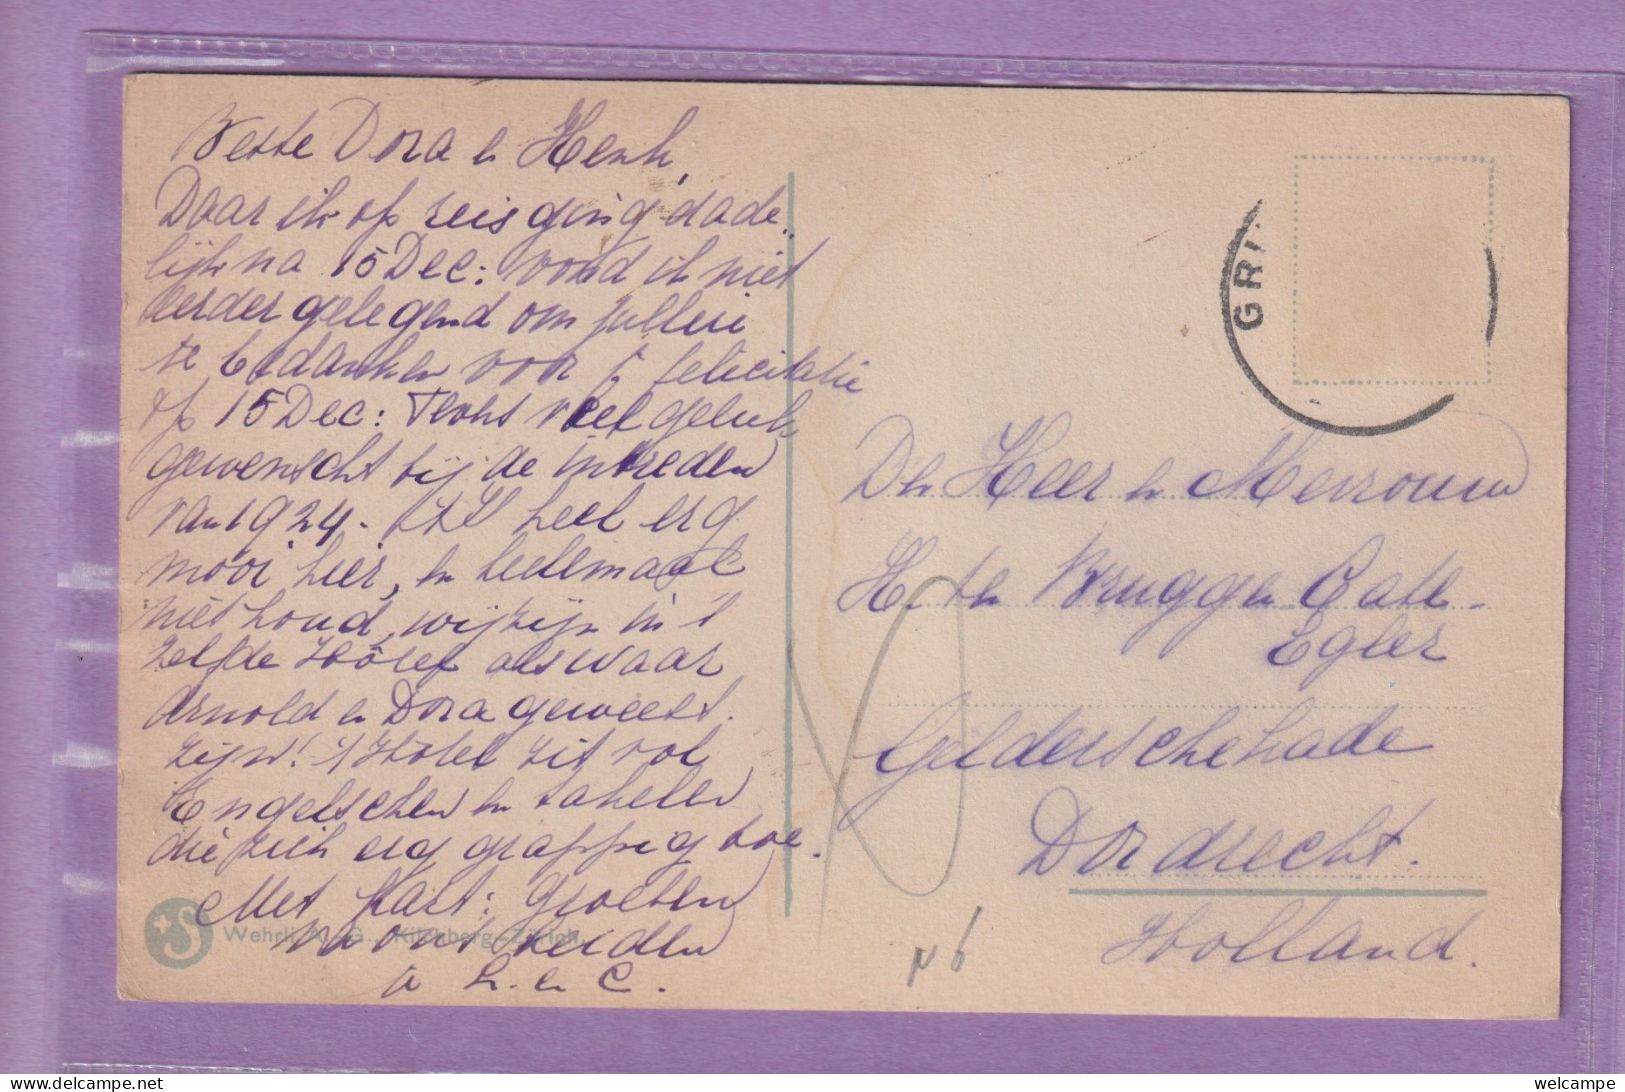 Beste Dora en Henk,
Daar ik op reis ging dade.
lijk na 15 Dec: vond ik niet
eerder gelegend om jullie
te bedanken voor felicitatie
op 15 Dec: Thans veel geluk
gewenscht bij de intreden
van 1924. heel erg
mooi hier, en heelemaal
niet koud, wij zijn in 't
zelfde Hôtel als waar
Arnold en Dora geweest.
zijn! 't Hôtel zit vol
Engelschen en
die zich erg grappig toe.
Met hart: groeten
van ons beiden
L. en C.
Wehrli A.-G., Kilchberg-Zürich.
GRI
Den Heer en Mevrouw
H. ten Bruggen Cate
Egter
Geldersche kade
Dordrecht.
Holland.
N 6
welcampe